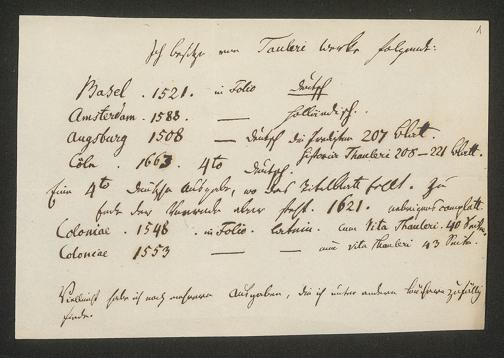 1
Ich besitze von Tauleri Werke folgende:
Basel . 1521. in Folio deutsch
Amsterdam . 1588. — holländisch.
Augsburg 1508 — deutsch die Predigten 207 Blatt.
Historia Thauleri 208–221 Blatt.
Cöln . 1663. 4to deutsch.
Eine 4to deutsche Ausgabe, wo das Titelblatt fehlt. Zu
Ende der Vorrede aber steht. 1621. uebrigens complett.
Coloniae . 1548 . in Folio. latein. cum Vita Thauleri. 40 Seiten.
Coloniae 1553 — — cum vita Thauleri 43 Seiten.
Vielleicht habe ich noch mehrere Ausgaben, die ich unter andern Büchern zufällig
finde.